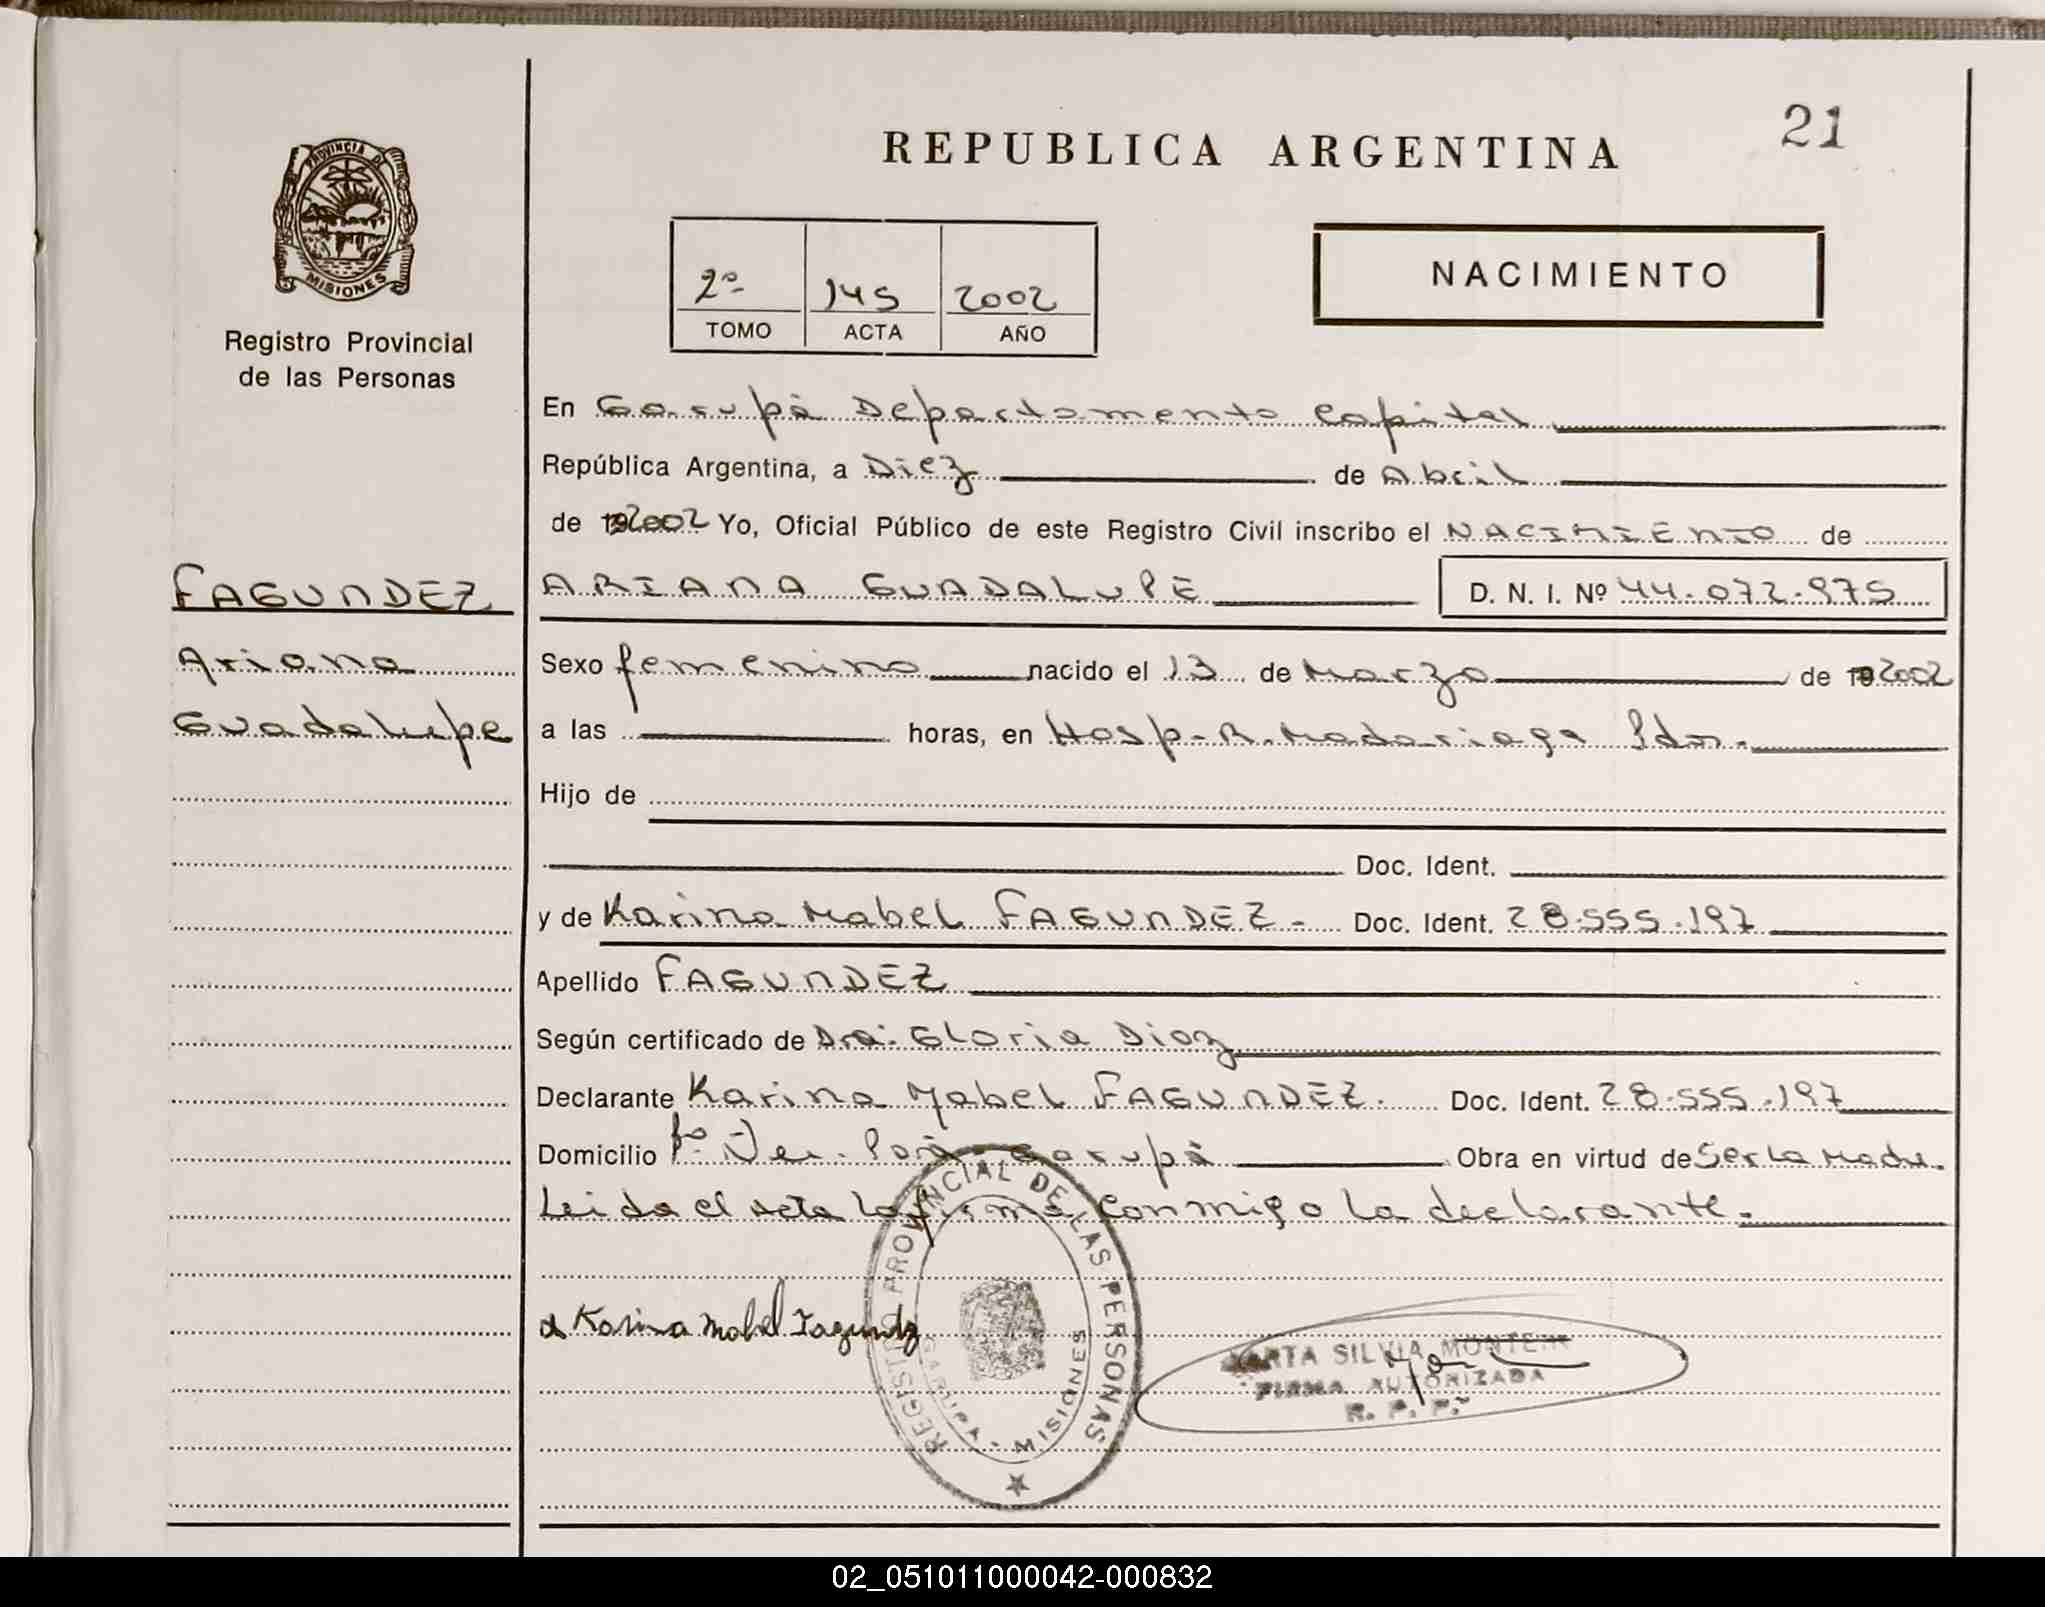 REPUBLICA ARGENTINA
21
PROVINCIA DE
MISIONES
Registro Provincial
de las Personas
2º 145 2002
TOMO ACTA AÑO
NACIMIENTO
En Garupá Departamento Capital
República Argentina, a Diez de Abril
de 2002 Yo, Oficial Público de este Registro Civil inscribo el NACIMIENTO de
FAGUNDEZ
ARIANA GUADALUPE D. N. I. Nº 44.072.975
Ariana
Sexo femenino nacido el 13 de Marzo de 2002
Guadalupe
a las horas, en Hosp. R. Madariaga Pdas.
Hijo de
Doc. Ident.
y de Karina Mabel FAGUNDEZ - Doc. Ident. 28.555.197
Apellido FAGUNDEZ
Según certificado de Dra. Gloria Diaz
Declarante Karina Mabel FAGUNDEZ. Doc. Ident. 28.555.197
Domicilio Porá - Garupá Obra en virtud de Ser la Madre.
Leida el acta la firma conmigo la declarante.
Karina Mabel Fagundez
REGISTRO PROVINCIAL DE LAS PERSONAS
GARUPA - MISIONES
MARTA SILVIA
FIRMA AUTORIZADA
R. P. P.
02_051011000042-000832